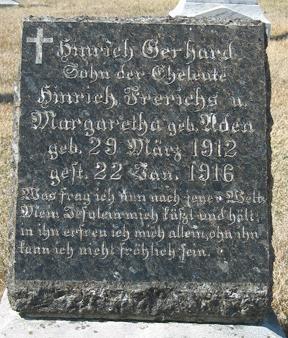 Hinrich Gerhard
Sohn der Eheleute
Hinrich Frerichs u.
Margaretha geb. Aden
geb. 29 März 1912
gest. 22 Jan. 1916
Was frag ich nun nach jener Welt
Mein Jesulein mich küßt und hält:
in ihn erfreu ich mich allein, ohn ihn
kann ich nicht fröhlich sein.